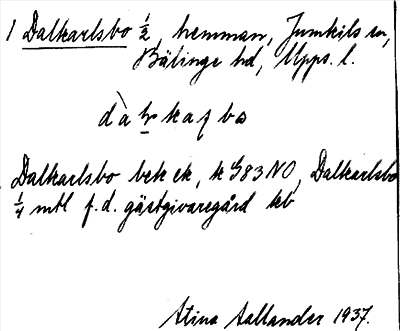 1 Dalkarlsbo ½, hemman, Jumkils sn,
Bälinge hd, Upps. l.
Dalkarlsbo bek ek, k G83 NO, Dalkarlsbo
¼ mtl f.d. gästgivaregård kb
Stina Aallander 1937.